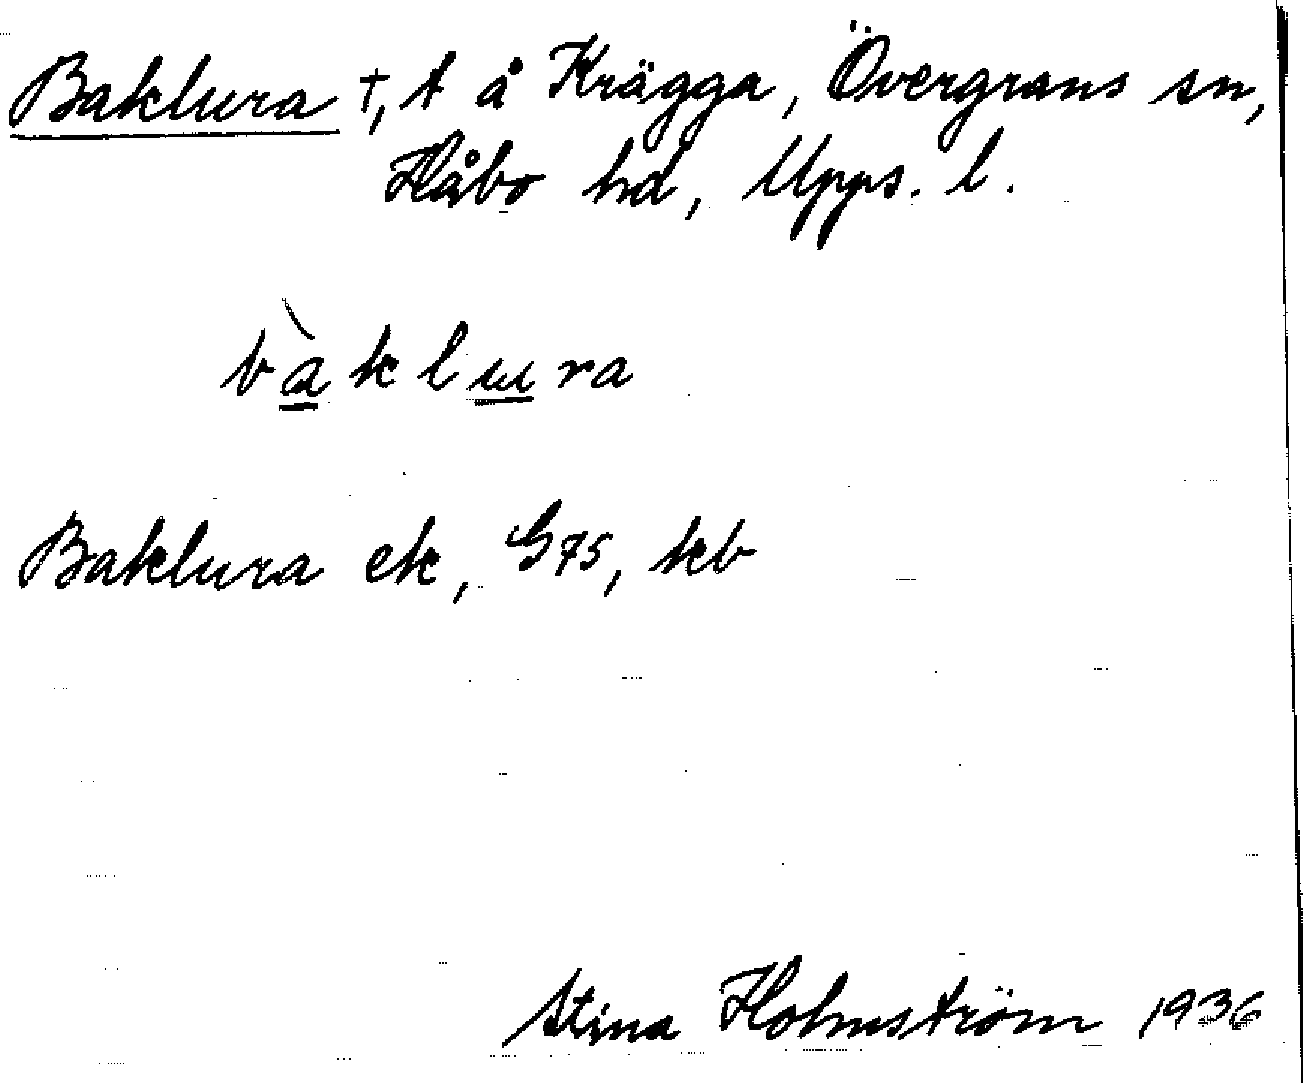 Baklura †, t å Krägga, Övergrans sn,
Håbo hd, Upps. l.
bàklura
Baklura ek, G75, kb
Stina Holmström 1936